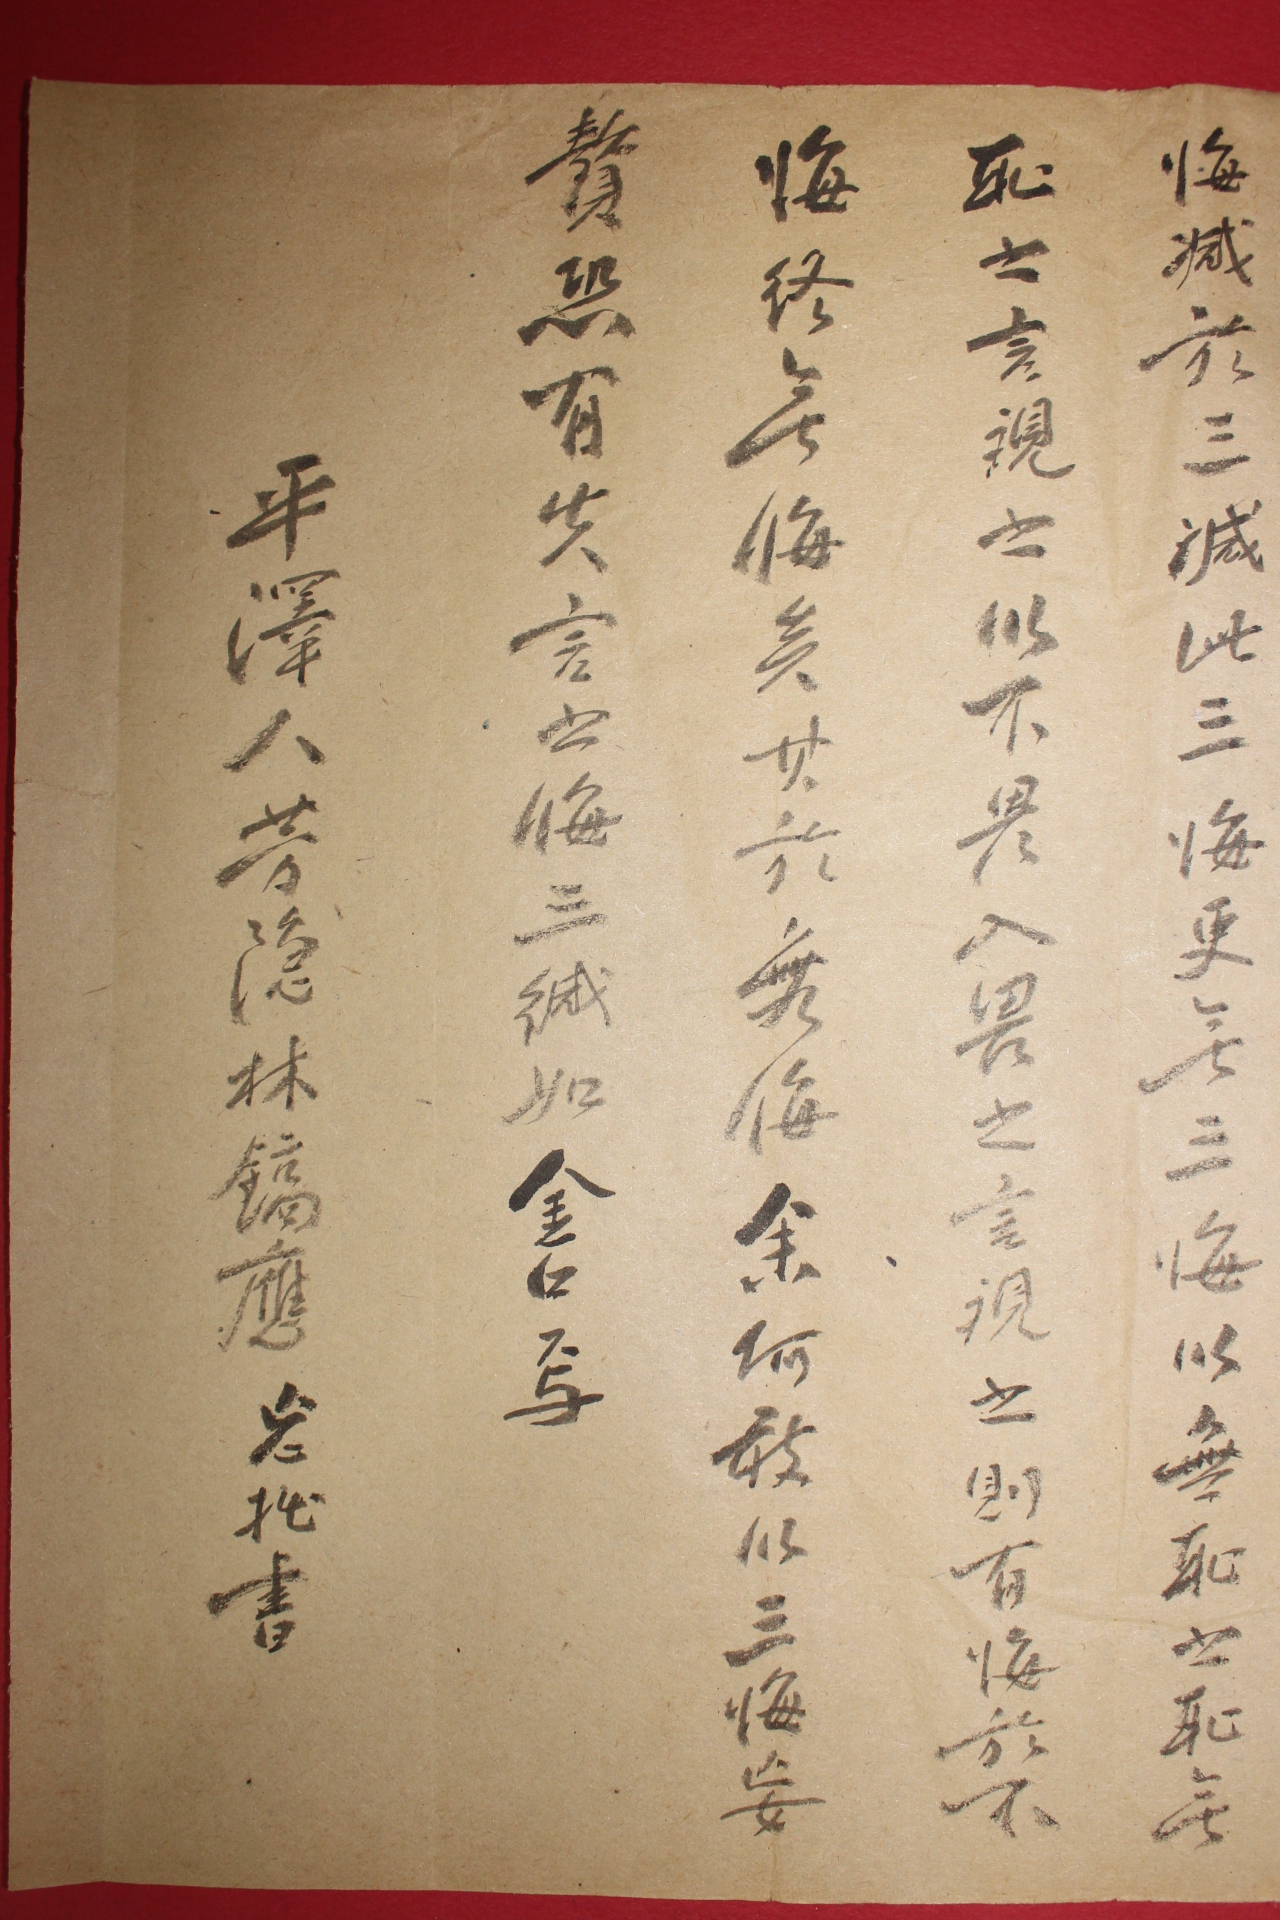 悔減於三緘此三悔更無三悔以無恥之恥無
恥之言視之似不畏入畏之言視之則有悔於不
悔終無悔矣其於無悔余何敢以三悔妄
贅恐有失言之悔三緘如金口写
平澤人芳隱林鎬應 老拙書